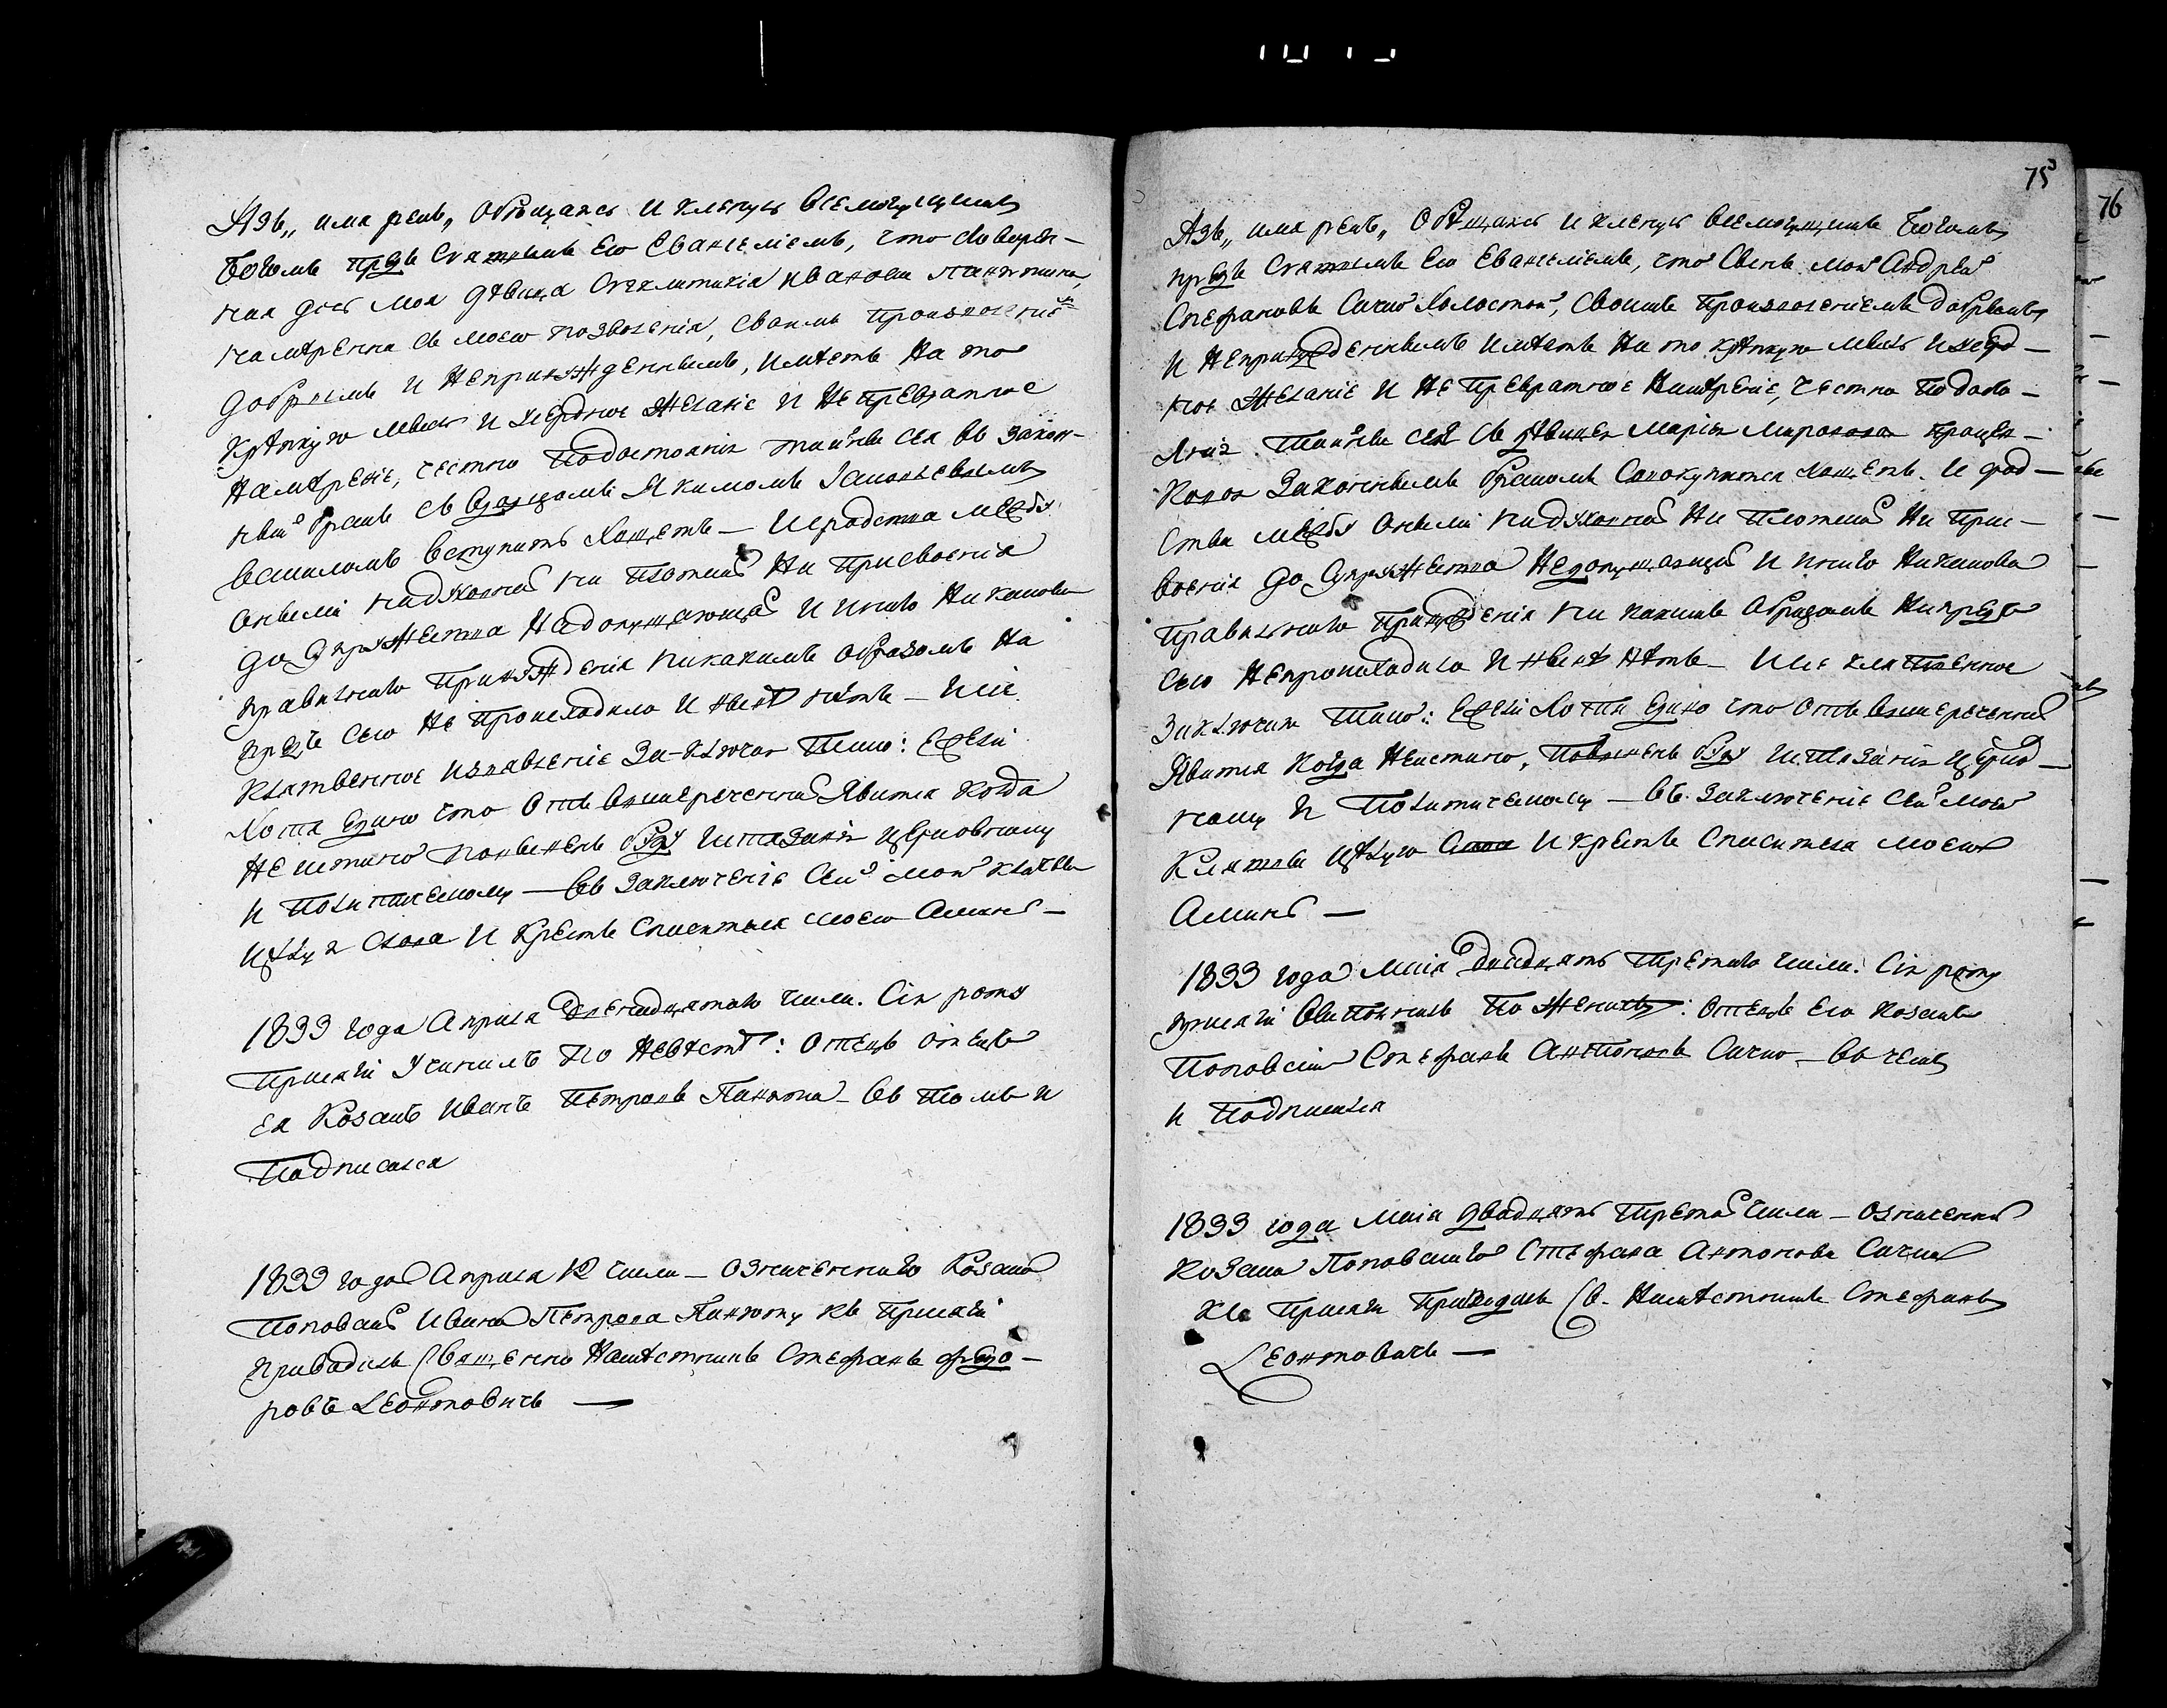 Азъ,, имя рекъ,, обѣщаюсь и кленусь всемогущимъ
Богомъ предъ святымъ Его Евангелiемъ, что
ная дочь моя дѣвица Иванова
намѣренна съ моего позволенiя, своимъ произволенiемъ
добрымъ и непринужденнымъ, имѣетъ на то
крѣпкую мысль и усердное желанiе и не превратное
намѣренiе, честно подостоянiя тайнѣ сея въ закон-
ный бракъ съ Якимомъ
вступить хощетъ — и родства между
оными ни духовнаго ни плотскаго ни присвоенiя
до супружества недопущающаго и иного никакова
правильного принужденiя никакимъ образомъ на
предъ сего не происходило и нынѣ нѣтъ — и сiе
клятвенное изявленiе заключаю тимъ: Ежели
хотя едино что отъ вишереченнихъ явится когда
не истинно повиненъ буду истязанiю церковному
и политическому — въ заключенiе сей моей клятвы
цѣлую слова и крестъ спасителя моего Аминь —
1833 года Априля дленадцятого числа. Сiю роту
присяги учинилъ по невѣстѣ: отецъ
ея козакъ Иванъ Петровъ въ томъ и
подписался
1833 года Априля 12 числа — означенного козака
Поповского Ивана Петрова къ присяги
приводилъ Священно Намѣстникъ Стефанъ Федо-
ровъ Леонтовичъ —
75
76
Азъ,, имя рекъ,, обѣщаюсь и кленусь всемогущимъ Богомъ
предъ святымъ Его Евангелiемъ, что сынъ мой Андрей
Стефановъ холостой, своимъ произволенiемъ добрымъ
и непринужденнымъ имѣетъ на то крѣпкую мысль и усерд-
ное желанiе и не превратное намѣренiе, честно подосто-
янiю тайнѣ сея съ дѣвицею Марiею
законнымъ бракомъ совокупитися хощетъ. и род-
ства между оными ни духовнаго ни плотскаго ни прис-
военiя до супружества недопущающаго и иного никакова
правильного принужденiя ни какимъ образомъ на предъ
сего непроисходило и нынѣ нѣтъ — и сiе клятвенное
заключаю тимъ: Ежели хотя едино что отъ вишереченнихъ
явится когда неистинно, повиненъ буду истязанiю церков-
ному и политическому — въ заключенiе сей моей
клятвы цѣлую слова и крестъ спасителя моего
Аминь —
1833 года Маiя двадцять третього числа: Сiю роту
присяги по жениху: отецъ его козакъ
Поповскiй Стефанъ Антоновъ — въ чемъ
и подписался
1833 года Маiя двадцять третяго числа — означенного
козака Поповского Стефана Антонова
къ присяги приводилъ Св. Намѣстникъ Стефанъ
Леонтовичъ —